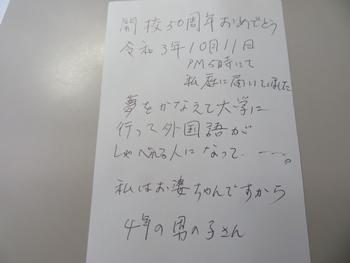 開校50周年おめでとう
令和3年10月11日
PM5時にて
私庭に届いてました
夢をかなえて大学に
行って外国語が
しゃべれる人になって
私はお婆ちゃんですから
4年の男の子さん